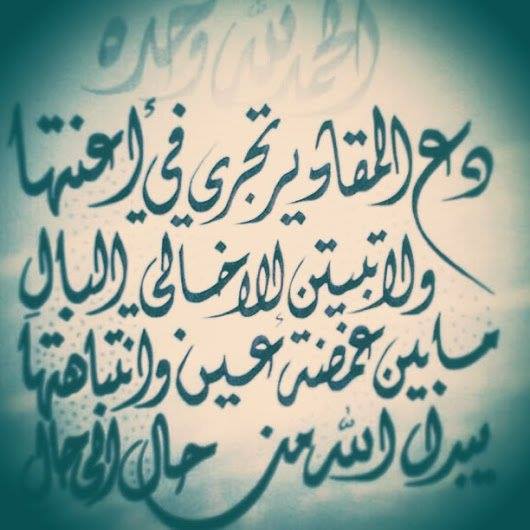 الحمد لله وحده
دع المقادير تجري في أعنتها
ولا تبيتن إلا خالي البال
ما بين غمضة عين وانتباهتها
يبدل الله من حال إلى حال